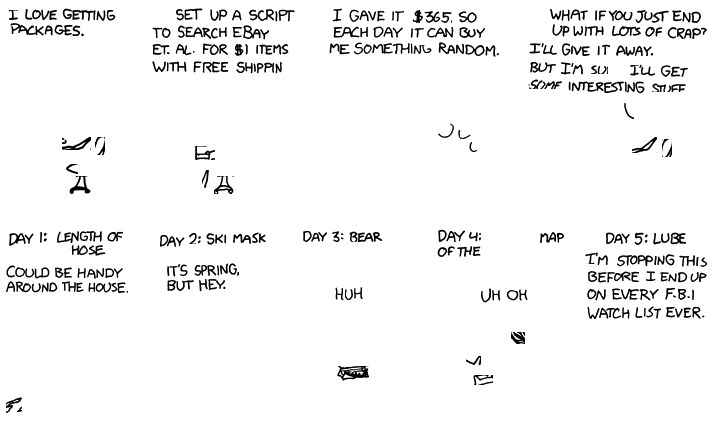 I LOVE GETTING
PACKAGES.
SET UP A SCRIPT
TO SEARCH EBAY
ET. AL. FOR $1 ITEMS
WITH FREE SHIPPIN
I GAVE IT $365. SO
EACH DAY IT CAN BUY
ME SOMETHING RANDOM.
WHAT IF YOU JUST END
UP WITH LOTS OF CRAP?
I'LL GIVE IT AWAY.
BUT I'M I'LL GET
SOME INTERESTING STUFF
DAY 1: LENGTH OF
HOSE
COULD BE HANDY
AROUND THE HOUSE.
DAY 2: SKI MASK
IT'S SPRING,
BUT HEY.
DAY 3: BEAR
HUH
DAY 4: MAP
OF THE
UH OH
DAY 5: LUBE
I'M STOPPING THIS
BEFORE I END UP
ON EVERY F.B.I
WATCH LIST EVER.